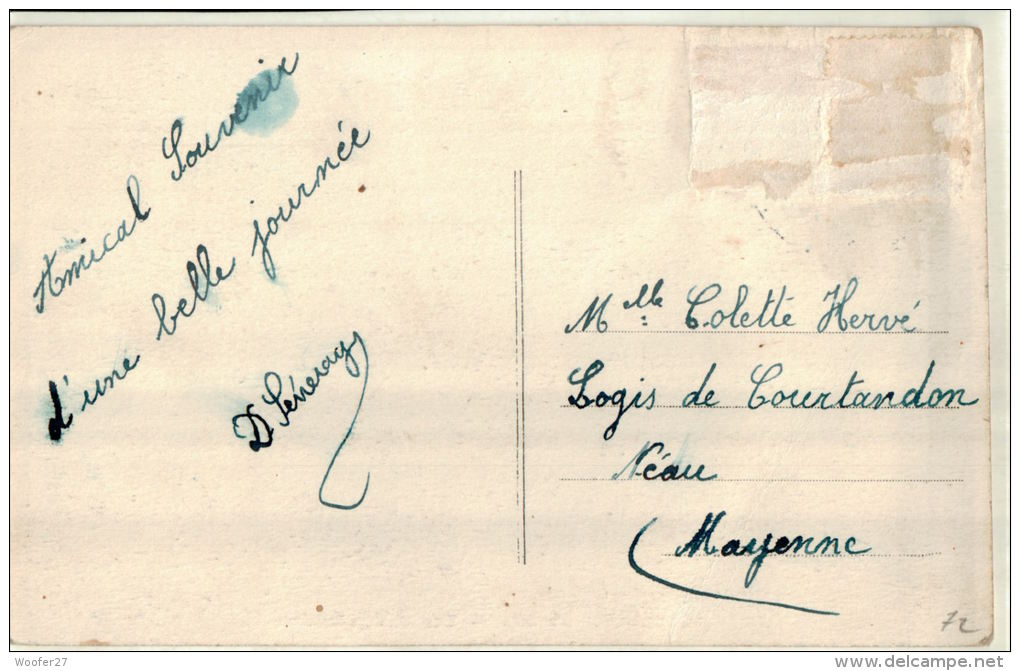 Amical Souvenir
d'une belle journée
Mlle Colette Hervé
Logis de Courtandon
Néau
Mayenne
72
Woofer27
www.delcampe.net